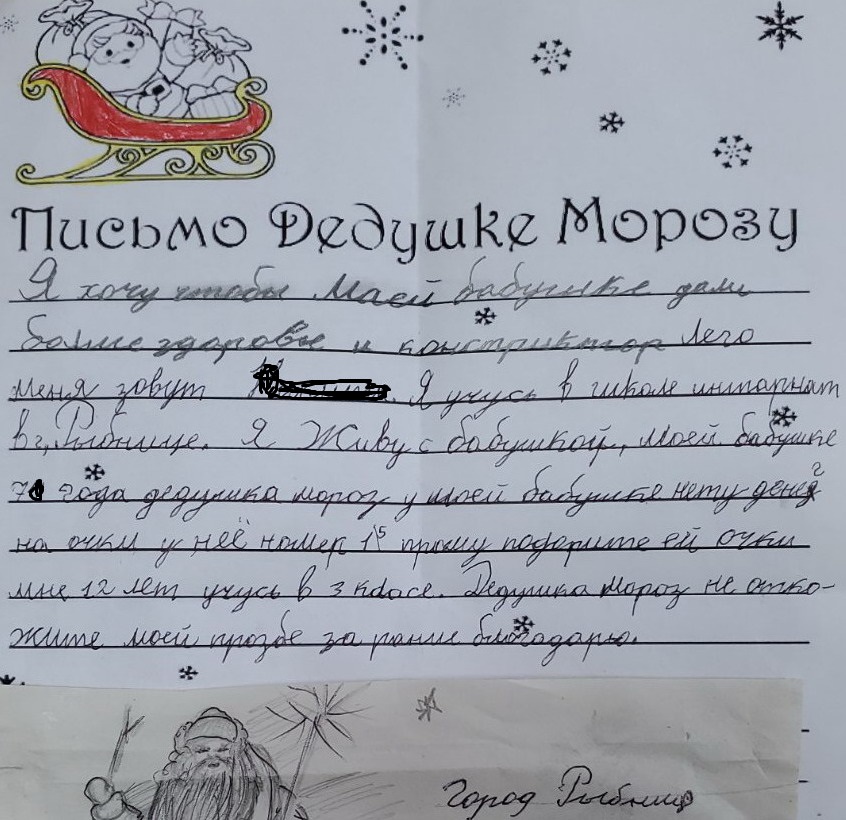 Письмо Дедушке Морозу
Я хочу чтобы Маей бабушке дали
болше здоровье и конструктор Лего
меня зовут Я учусь в школе интарнат
в г. Рыбнице. Я Живу с бабушкой, моей бабушке
71 года дедушка мороз у моей бабушке нету денег
на очки у неё номер 1⁵ прошу подорите ей очки
мне 12 лет учусь в 3 класе. Дедушка мороз не отко-
жите моей прозбе за рание благодарю.
Город Рыбница